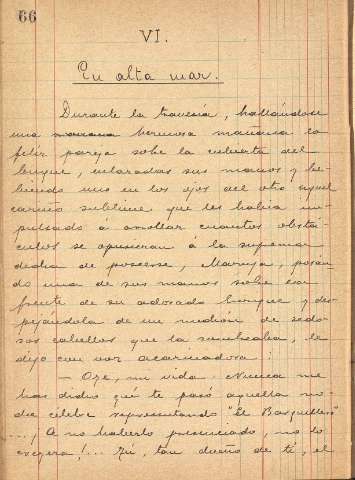 66
VI.
En alta mar.
Durante la travesía, hallándose
una mañana hermosa mañana la
feliz pareja sobre la cubierta del
buque, enlazadas sus manos y be-
biendo uno en los ojos del otro aquel
cariño sublime que les había im-
pulsado á arrollar cuantos obstá-
culos se opusieran á la suprema
dicha de poseerse, Maruja, posan-
do una de sus manos sobre la
frente de su adorado Enrique y des-
pejándola de un mechón de sedo-
sos cabellos que la sombreaba, le
dijo con voz acariciadora:
— Oye, mi vida. Nunca me
has dicho qué te pasó aquella no-
che célebre representando "El Barquillero"
...¡A no haberlo presenciado, no lo
creyera!... Tú, tan dueño de tí, el